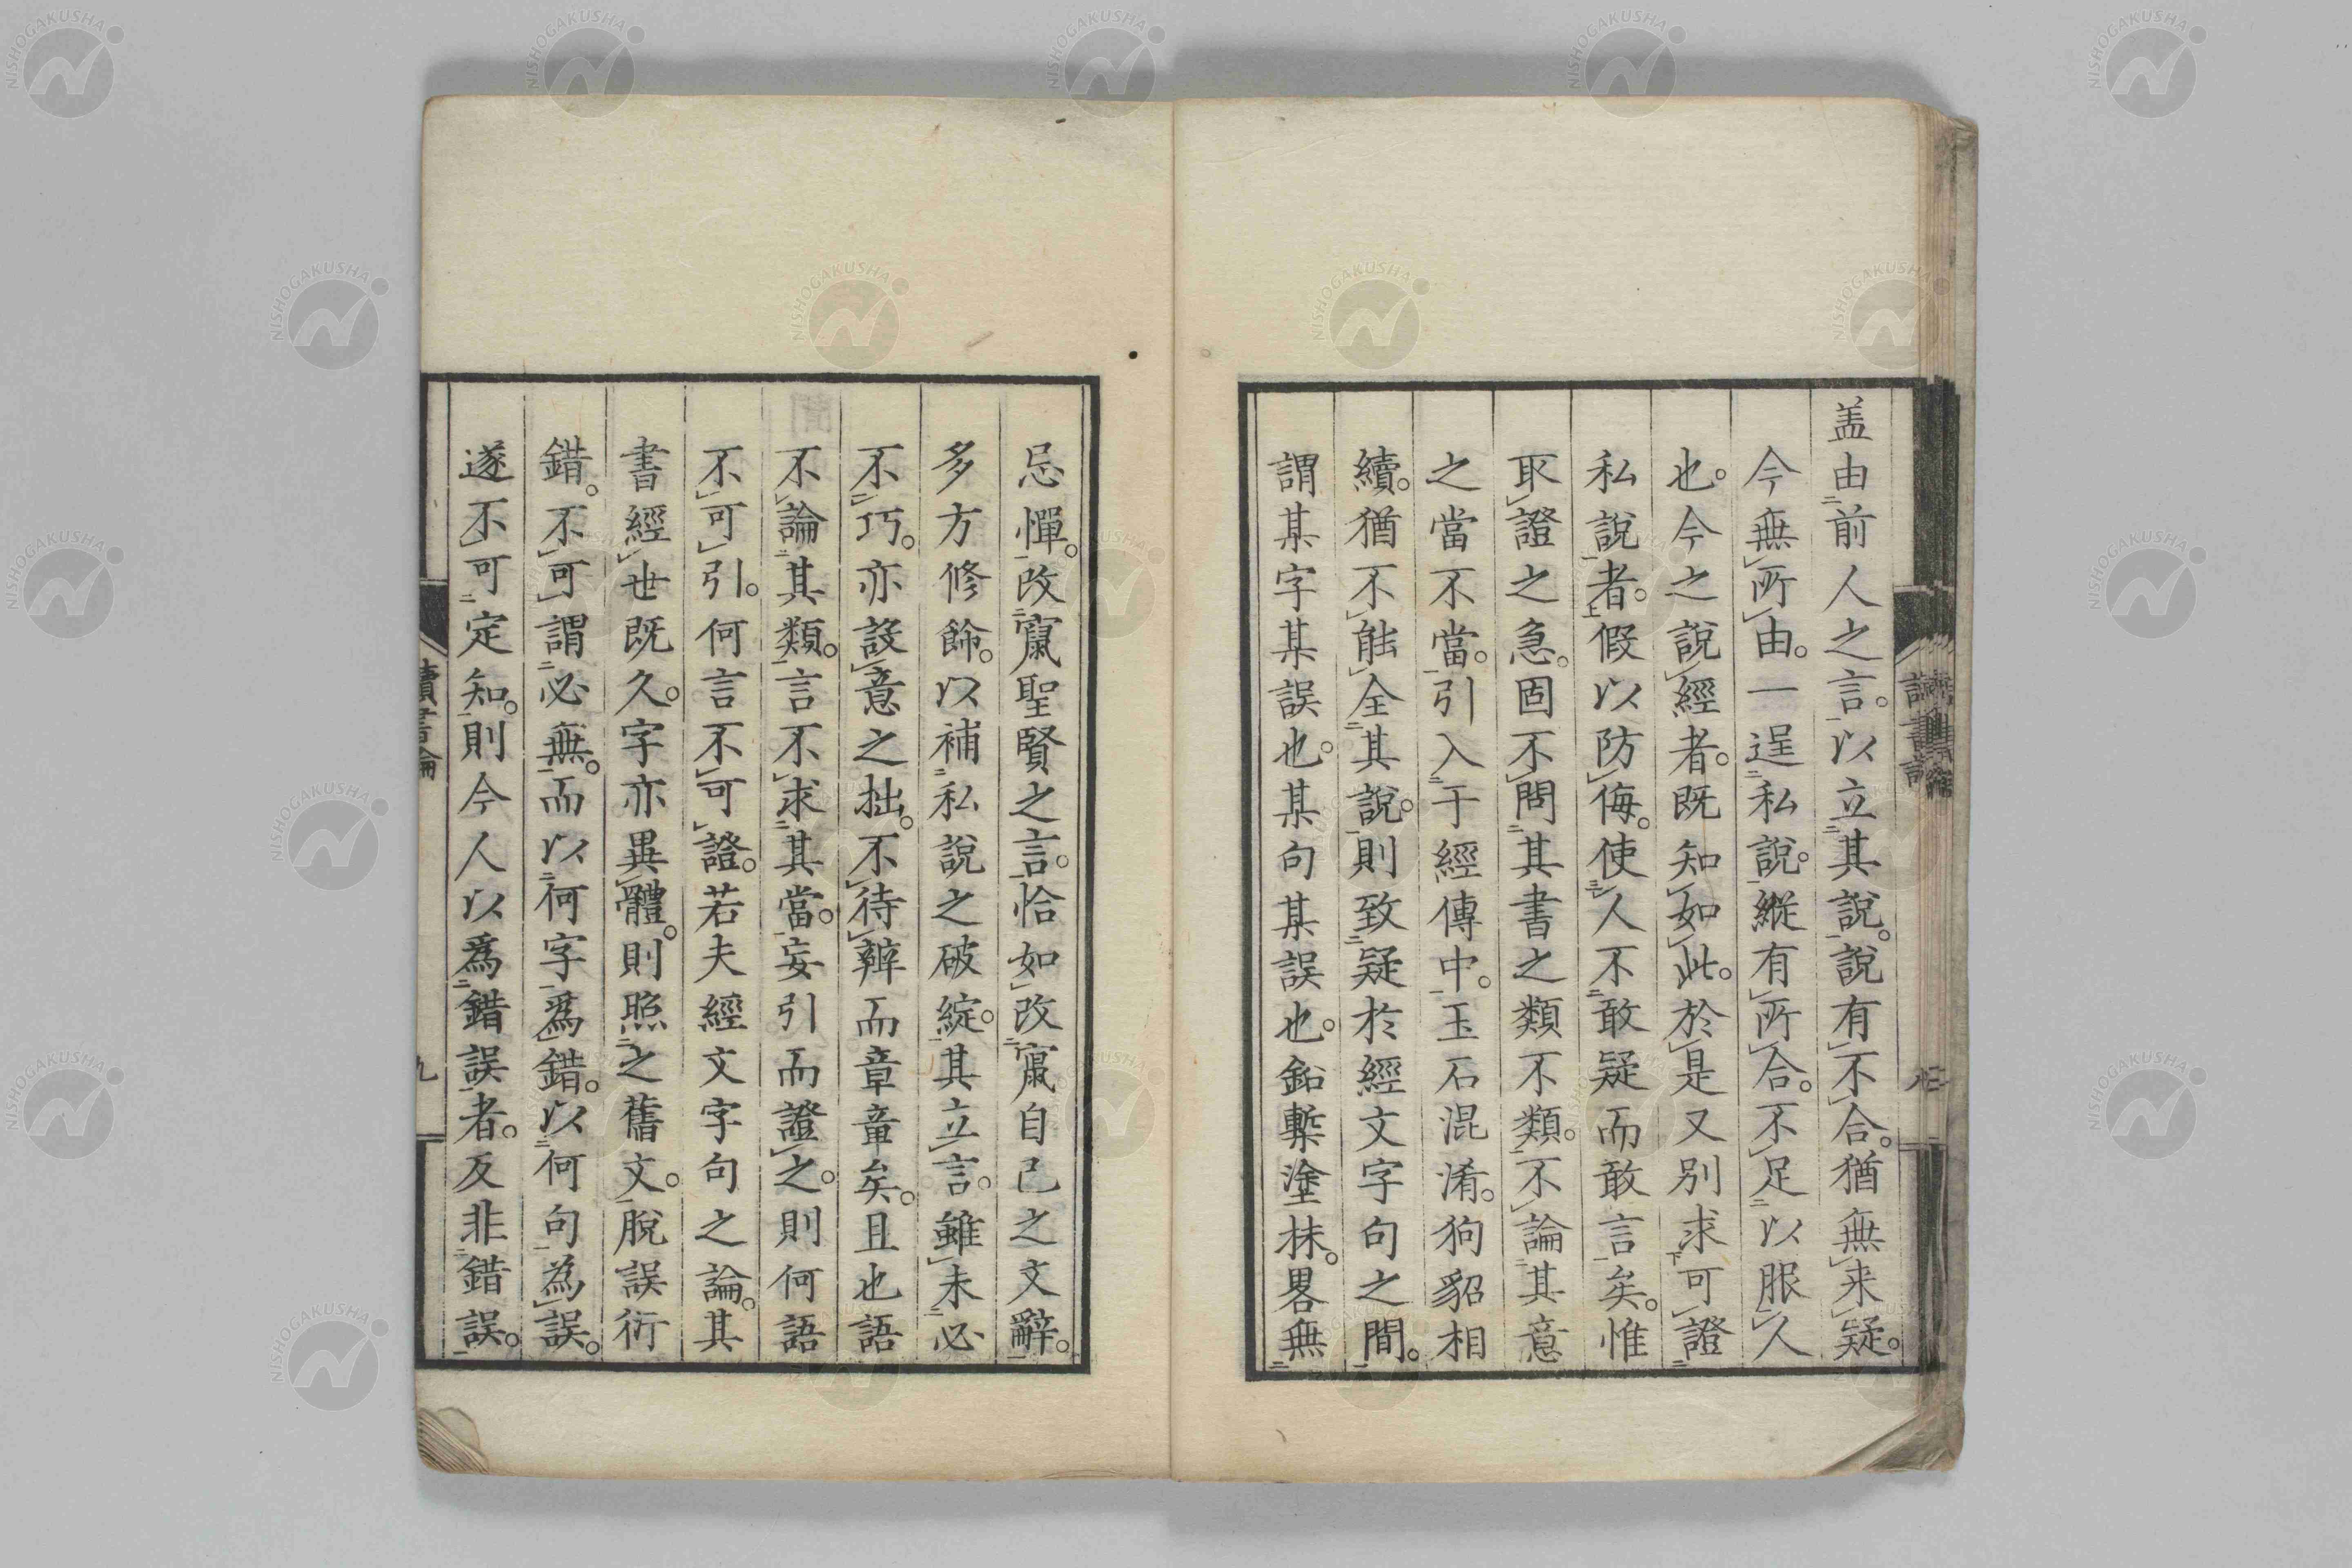 盖由前人之言。以立其說。說有不合。猶無来疑。
今無所由。一逞私說。縱有所合。不足以服人
也。今之說經者。既知如此。於是又別求可證
私說者。假以防侮。使人不敢疑而敢言矣。惟
取證之急。固不問其書之類不類。不論其意
之當不當。引入于經傳中。玉石混淆。狗貂相
續。猶不能全其說。則致疑於經文字句之間。
謂某字某誤也。某句某誤也。鉛槧塗抹。畧無
忌憚。改竄聖賢之言。恰如改竄自己之文辭。
多方修飾。以補私說之破綻。其立言。雖未必
不巧。亦設意之拙。不待辨而章章矣。且也語
不論其類。言不求其當。妄引而證之。則何語
不可引。何言不可證。若夫經文字句之論。其
書經世既久。字亦異體。則照之舊文。脫誤衍
錯。不可謂必無。而以何字為錯。以何句為誤。
遂不可定知。則今人以為錯誤者。反非錯誤。
讀書論
九